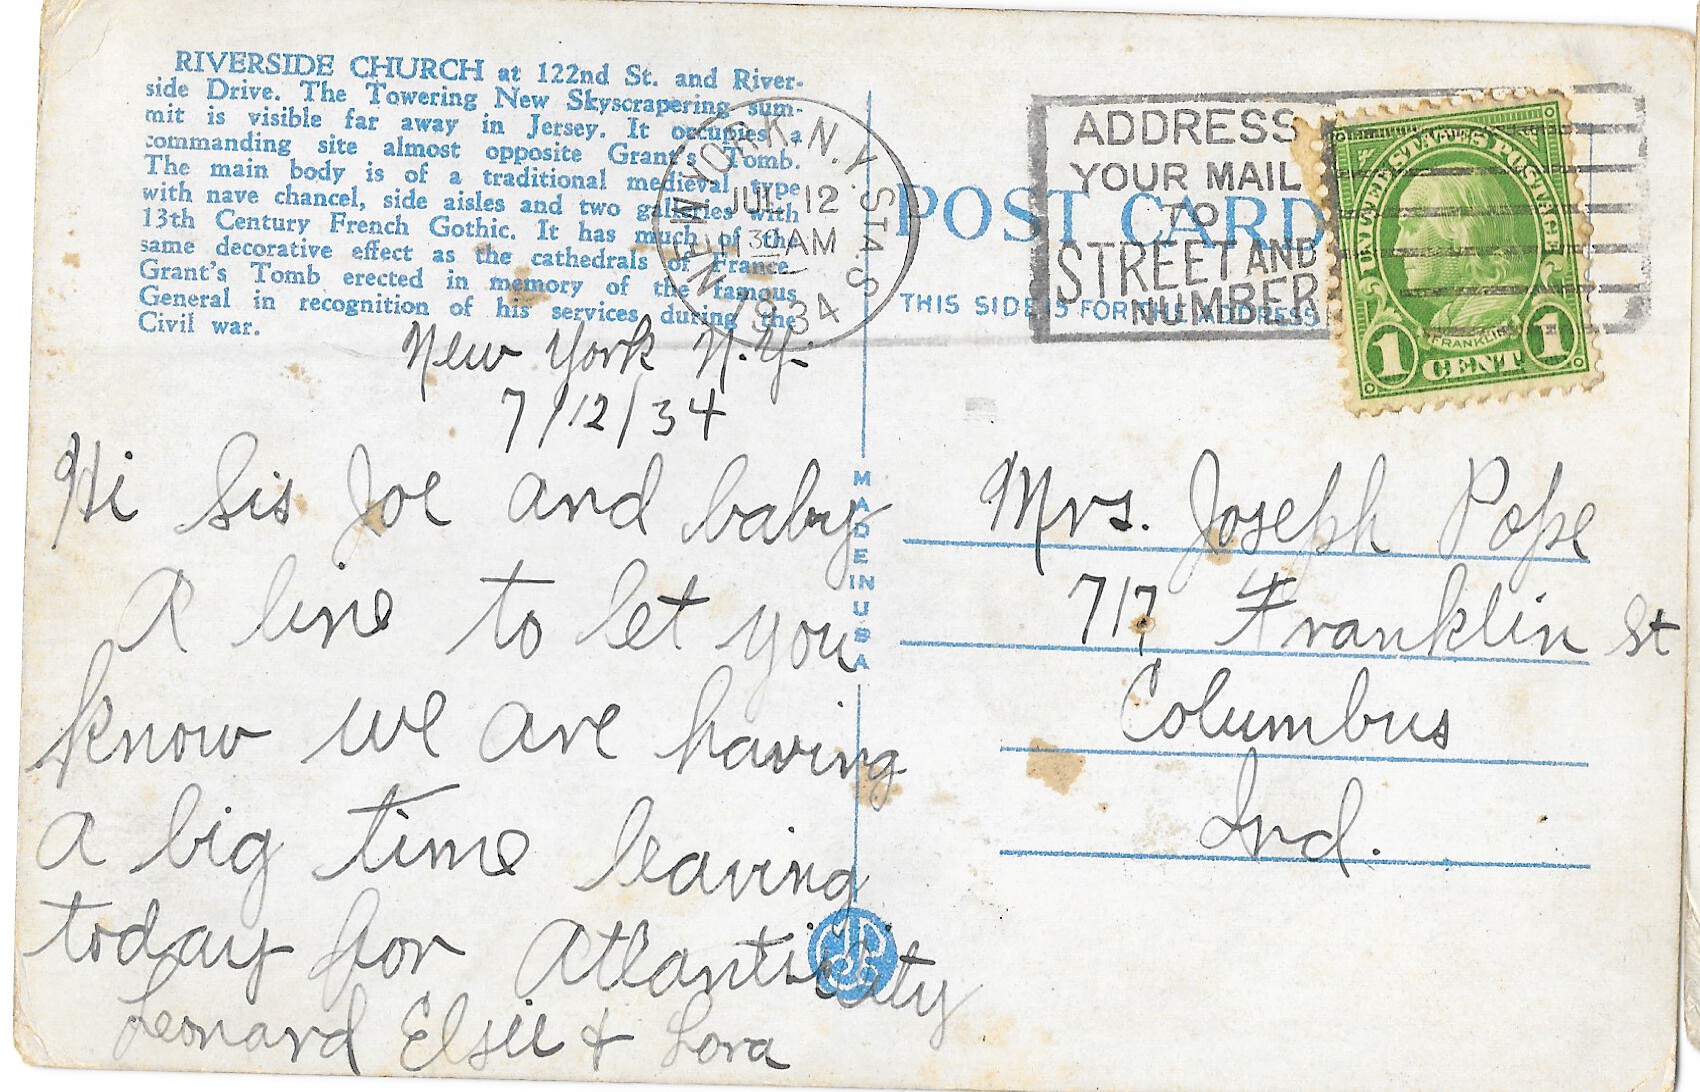 RIVERSIDE CHURCH at 122nd St. and River-
side Drive. The Towering New Skyscrapering sum-
mit is visible far away in Jersey. It occupies a
commanding site almost opposite Grant's Tomb.
The main body is of a traditional medieval type
with nave chancel, side aisles and two galleries with
13th Century French Gothic. It has much of the
same decorative effect as the cathedrals of France.
Grant's Tomb erected in memory of the famous
General in recognition of his services during the
Civil war.
New York N.Y.
7/12/34
Hi Sis Joe and baby
A line to let you
know we are having
a big time leaving
today for Atlantic City
Leonard Elsie + Lora
MADE IN U S A
NEW YORK, N.Y. STA. S
JUL 12
30 AM
1934
ADDRESS
YOUR MAIL
TO
STREET AND
NUMBER
POST CARD
THIS SIDE IS FOR THE ADDRESS
UNITED STATES POSTAGE
FRANKLIN
1 CENT 1
Mrs. Joseph Pope
717 Franklin St
Columbus
Ind.